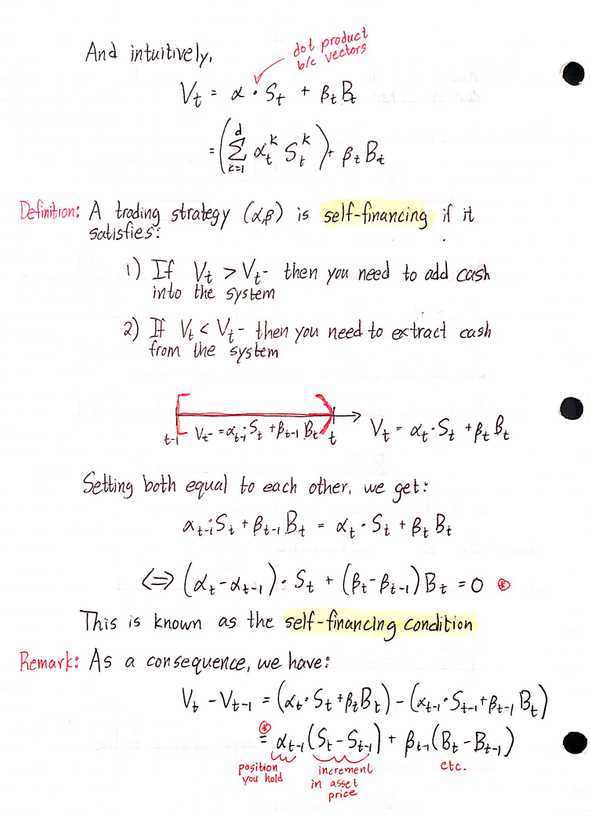 And intuitively,
dot product
b/c vectors
V_t = α · S_t + β_t B_t
= (∑_{k=1}^{d} α_t^k S_t^k) + β_t B_t
Definition: A trading strategy (α,β) is self-financing if it
satisfies:
1) If V_t > V_{t-} then you need to add cash
into the system
2) If V_t < V_{t-} then you need to extract cash
from the system
t-1 V_{t-} = α_{t-1} · S_t + β_{t-1} B_t t V_t = α_t · S_t + β_t B_t
Setting both equal to each other, we get:
α_{t-1} · S_t + β_{t-1} B_t = α_t · S_t + β_t B_t
⟺ (α_t - α_{t-1}) · S_t + (β_t - β_{t-1}) B_t = 0 ⊛
This is known as the self-financing condition
Remark: As a consequence, we have:
V_t - V_{t-1} = (α_t · S_t + β_t B_t) - (α_{t-1} · S_{t-1} + β_{t-1} B_t)
⊛
= α_{t-1} (S_t - S_{t-1}) + β_{t-1} (B_t - B_{t-1})
position
you hold
increment
in asset
price
etc.